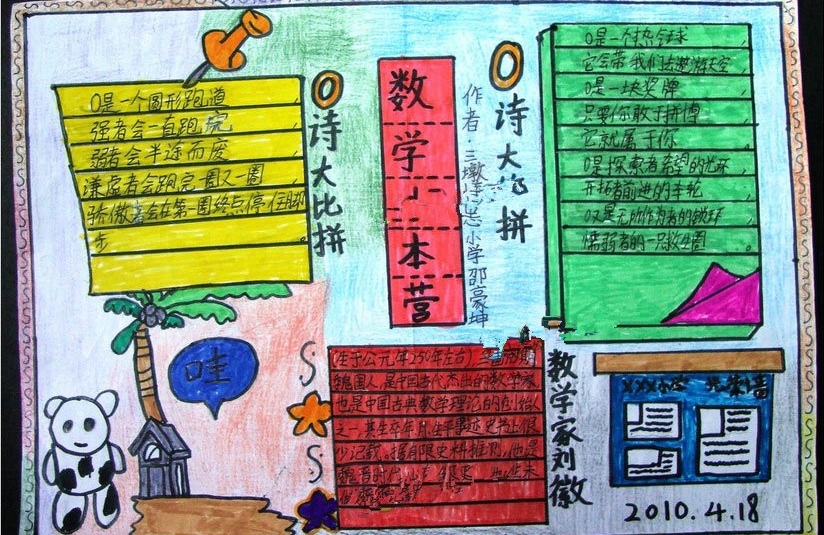 0是一个圆形跑道，
强者会一直跑完，
弱者会半途而废
谦虚者会跑完一圈又一圈，
骄傲者会在第一圈终点停住脚
步。
0诗大比拼
数学大本营
作者：三墩 小学邵豪坤
0诗大 拼
0是一个热气球，
它会带我们去遨游天空，
0是一块奖牌，
只要你敢于拼搏，
它就属于你，
0是探索者希望的光环，
开拓者前进的车轮，
0又是无所作为者的锁环，
懦弱者的一只救生圈。
哇
S
S
(生于公元年250年左右)，三国
魏国人，是中国古代杰出的数学家，
也是中国古典数学理论的创始人
之一，其生卒年月、生平事迹史书上很
少记载。据有限史料推测，他是
魏晋时代山东
数学家刘徽
XXX小学 光荣墙
2010.4.18